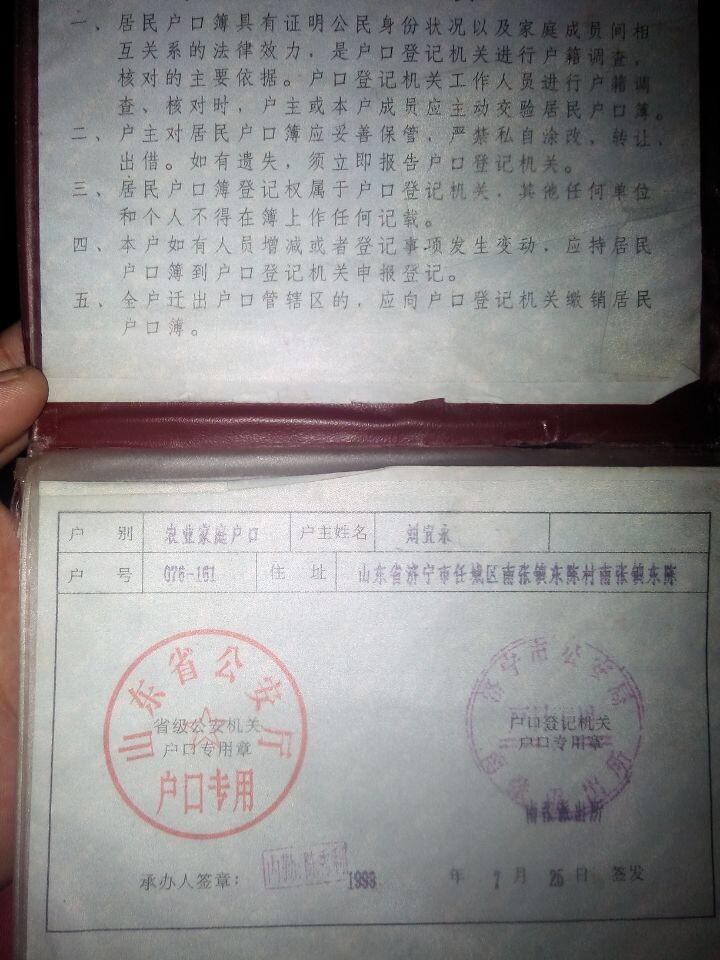 一、居民户口簿具有证明公民身份状况以及家庭成员间相
互关系的法律效力，是户口登记机关进行户籍调查，
核对的主要依据。户口登记机关工作人员进行户籍调
查、核对时，户主或本户成员应主动交验居民户口簿。
二、户主对居民户口簿应妥善保管，严禁私自涂改、转让、
出借。如有遗失，须立即报告户口登记机关。
三、居民户口簿登记权属于户口登记机关，其他任何单位
和个人不得在簿上作任何记载。
四、本户如有人员增减或者登记事项发生变动，应持居民
户口簿到户口登记机关申报登记。
五、全户迁出户口管辖区的，应向户口登记机关缴销居民
户口簿。
户 别 农业家庭户口 户主姓名 刘宜永
户 号 076-161 住 址 山东省济宁市任城区南张镇东陈村南张镇东陈
山东省公安厅
省级公安机关
户口专用章
户口专用
济宁市公安局
户口登记机关
户口专用章
承办人签章： 1998 年 7 月 25 日 签发